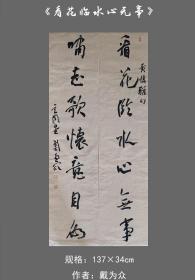 《看花临水心无事》
看花臨水心無事
嘯志歌懷意自如
规格：137×34cm
作者：戴为众